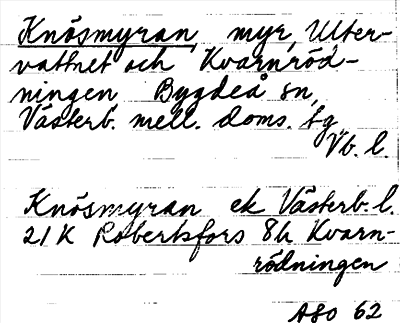 Knösmyran, myr, Utter-
vattnet och Kvarnröd-
ningen Bygdeå sn,
Västerb. mell. doms. sg,
Vb. l.
Knösmyran ek Västerb. l.
21K Robertsfors 8h Kvarn-
rödningen
ASO 62